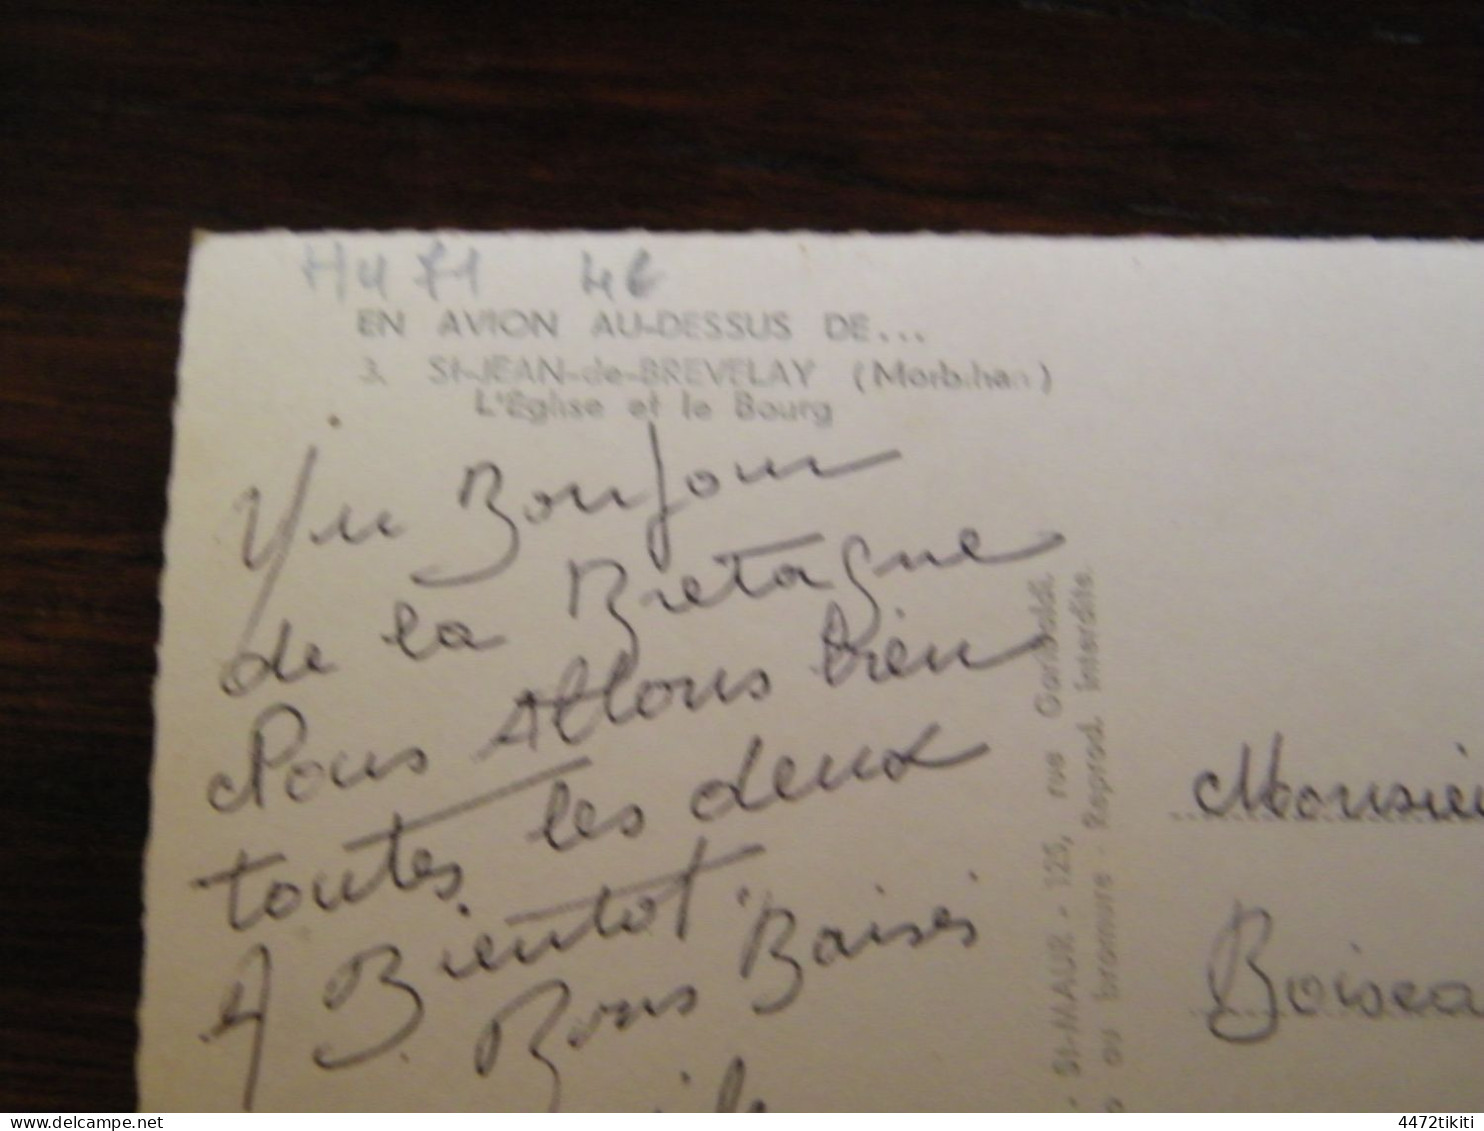 H4 71 4€
EN AVION AU-DESSUS DE...
3. St-JEAN-de-BREVELAY (Morbihan)
L'Eglise et le Bourg
Un Bonjour
de la Bretagne
Nous Allons bien
toutes les deux
A Bientot
Bons Baisés
St-MAUR - 125, rue Garibaldi.
au bromure - Reprod. interdite.
Monsieu
Boisea
delcampe.net
4472tikiti